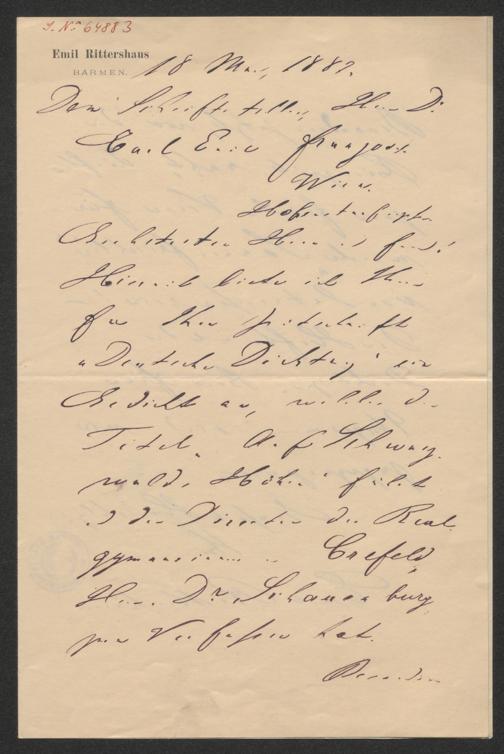 J. Nº 64883
Emil Rittershaus
BARMEN.
18 Mai, 1887.
Dem Schriftsteller, Herrn Dr
Carl Emil Franzos.
Wien.
Geehrtester Herr und Freund!
Hiermit biete ich Ihnen
für Ihre Zeitschrift
"Deutsche Dichtung" ein
Gedicht an, welches den
Titel "Auf Schwarz-
walds Höhen" führt
und den Director des Real-
gymnasiums in Crefeld,
Herrn Dr. Schauenburg,
zum Verfasser hat.